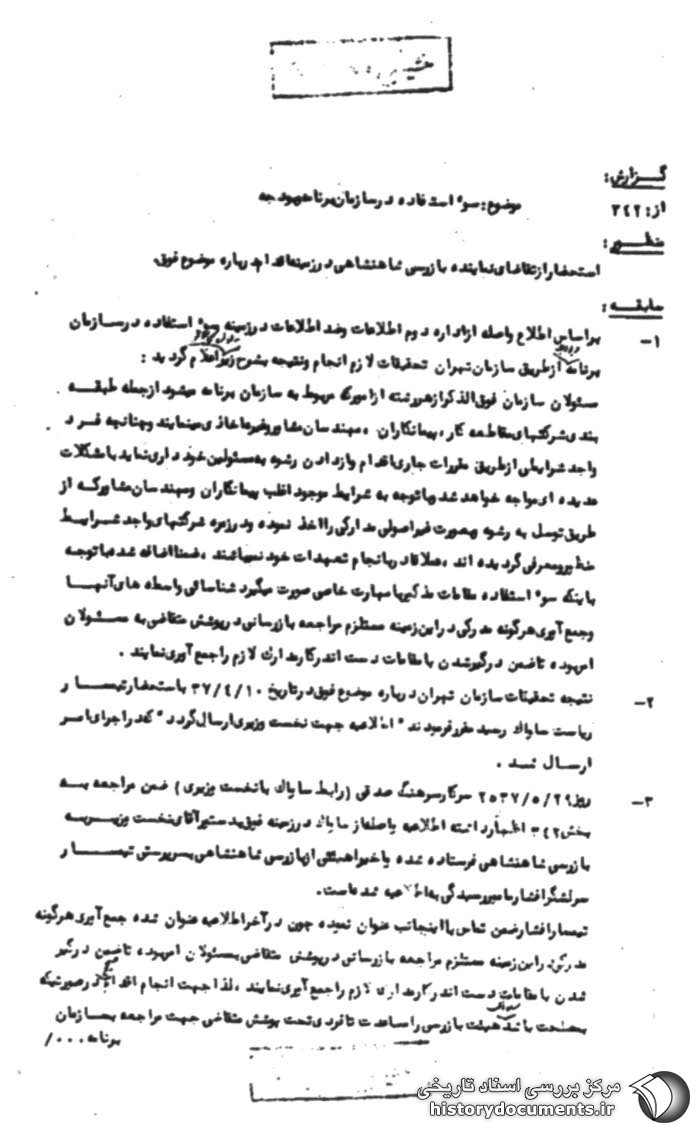 گزارش :
موضوع : سوء استفاده در سازمان برنامه و بودجه
از : ۳۴۲
منظور :
استحضار از تقاضای نماینده بازرسی شاهنشاهی در زمینه اقدام درباره موضوع فوق.
سابقه :
۱- براساس اطلاع واصله از اداره دوم اطلاعات وضد اطلاعات در زمینه سوء استفاده در سازمان
برنامه از طریق سازمان تهران تحقیقات لازم انجام ونتیجه بشرح زیر اعلام گردید :
مسئولان سازمان فوق الذکر از هر رشته از امور که مربوط به سازمان برنامه میشود از جمله طبقه
بندی شرکتهای مقاطعه کار ، پیمانکاران ، مهندسان مشاور وغیره اخاذی مینمایند وچنانچه فرد
واجد شرایطی از طریق مقررات جاری اقدام واز دادن رشوه به مسئولین خودداری نماید با مشکلات
عدیده ای مواجه خواهد شد وبا توجه به شرایط موجود اغلب پیمانکاران ومهندسان مشاور که از
طریق توسل به رشوه وبصورت غیر اصولی مدارکی را اخذ نموده ودر زمره شرکتهای واجد شرایط
منظور ومعرفی گردیده اند ، عملا قادر بانجام تعهدات خود نمیباشند ، ضمنا اضافه شده با توجه
باینکه سوء استفاده مقامات مذکور با مهارت خاصی صورت میگیرد شناسائی واسطه های آنها
وجمع آوری هرگونه مدرکی در این زمینه مستلزم مراجعه بازرسانی در پوشش متقاضی به مسئولان
امر بوده تا ضمن درگیر شدن با مقامات دست اندرکار مدارک لازم را جمع آوری نمایند .
۲- نتیجه تحقیقات سازمان تهران درباره موضوع فوق در تاریخ ۳۷/۴/۱۰ باستحضار تیمسار
ریاست ساواک رسید مقرر فرمودند " اطلاعیه جهت نخست وزیری ارسال گردد " که در اجرای امر
ارسال شد .
۳- روز ۲۵۳۷/۵/۲۹ سرکار سرهنگ صدقی (رابط ساواک با نخست وزیری) ضمن مراجعه به
بخش ۳۴۲ اظهار داشته اطلاعیه واصله از ساواک در زمینه فوق بدستور آقای نخست وزیر به
بازرسی شاهنشاهی فرستاده شده واخیرا هیئتی از بازرسی شاهنشاهی بسرپرستی تیمسار
سرلشگر افشار مامور رسیدگی به اطلاعیه شده است.
تیمسار افشار ضمن تماس با اینجانب عنوان نموده چون در آخر اطلاعیه عنوان شده جمع آوری هرگونه
مدرکی در این زمینه مستلزم مراجعه بازرسانی در پوشش متقاضی بمسئولان امر بوده تا ضمن درگیر
شدن با مقامات دست اندرکار مدارک لازم را جمع آوری نمایند ، لذا جهت انجام اقدام در صورتیکه
بمصلحت باشد هیئت بازرسی را مساعدت تا فردی تحت پوشش متقاضی جهت مراجعه به سازمان
برنامه ۰۰۰/
مرکز بررسی اسناد تاریخی
historydocuments.ir